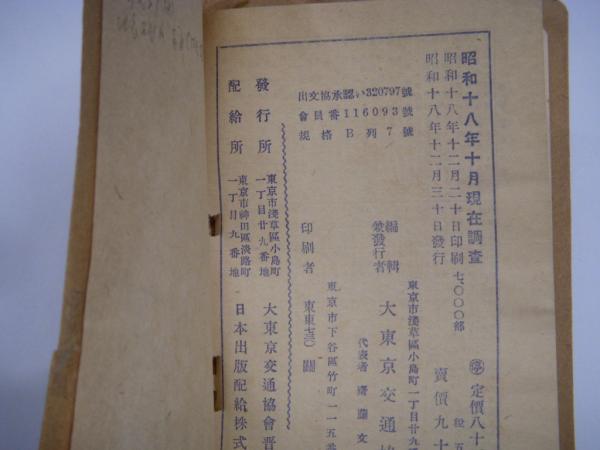 昭和十八年十月現在調査
昭和十八年十二月二十日印刷 七、〇〇〇部
昭和十八年十二月三十日發行
㊞定價八十
賣價九十
段五
出文協承認い320797號
會員番116093號
規格B列7號
編輯兼發行者
東京市淺草區小島町一丁目廿九
大東京交通協
代表者
文
印刷者
東京市下谷區竹町一一五番
東東
發行所
東京市淺草區小島町一丁目廿九番地
大東京交通協會
配給所
東京市神田區淡路町一丁目九番地
日本出版配給株式